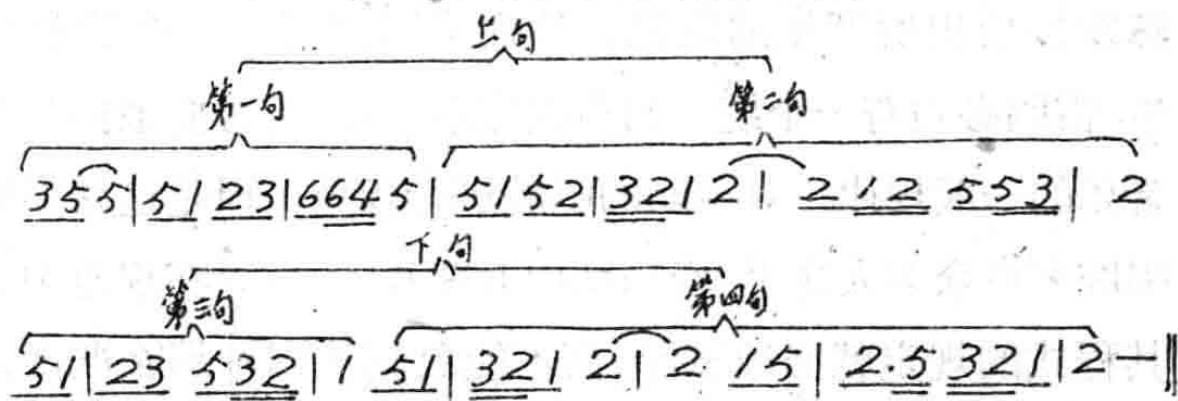 上句
第一句 第二句
355|51 23|664 5|51 52|321 2|2 12 553|2
下句
第三句 第四句
51|23 532|1 51|321 2|2 15|2.5 321|2—‖